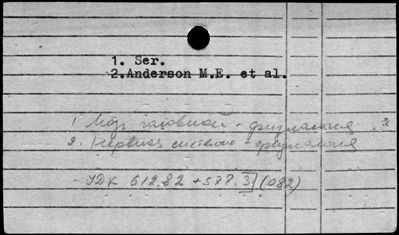 1. Ser.
2. Anderson M.E. et al.
1 Мозг головной - физиология
2. Нервная система - физиология
- УДК 612.82 + 577.3](082)